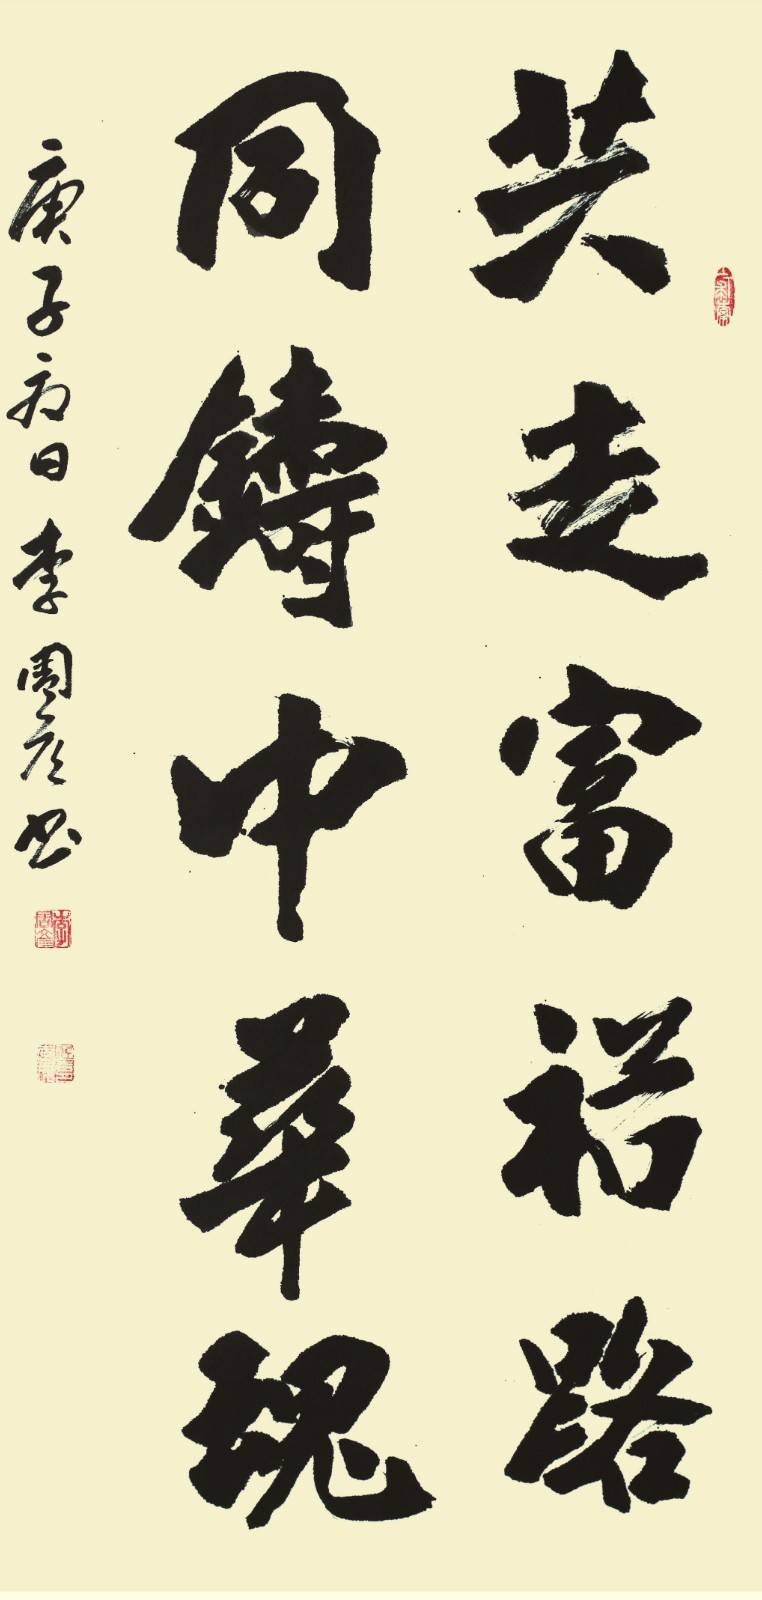 共走富裕路
同鑄中華魂
庚子夏日 李周彦书